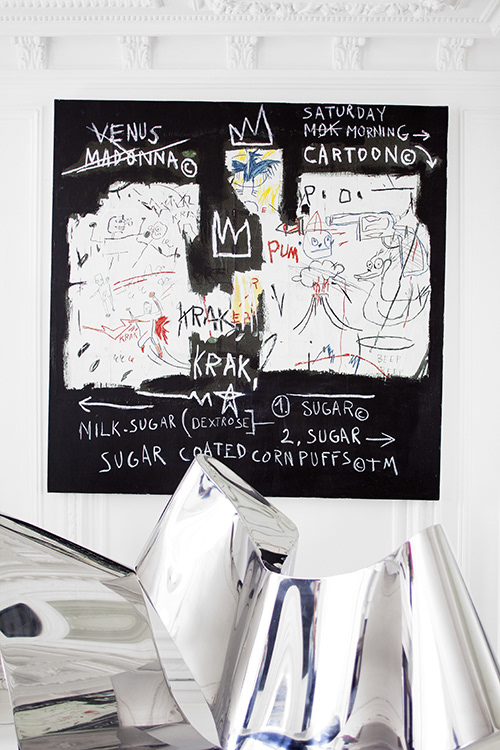 VENUS
MADONNA©
SATURDAY
MOR MORNING →
CARTOON©
P.O.
PUM
KRAK,
KRAK,
KRAK
1. SUGAR©
MILK-SUGAR (DEXTROSE]
2, SUGAR →
SUGAR COATED CORN PUFFS©TM
BEEP
BEEP